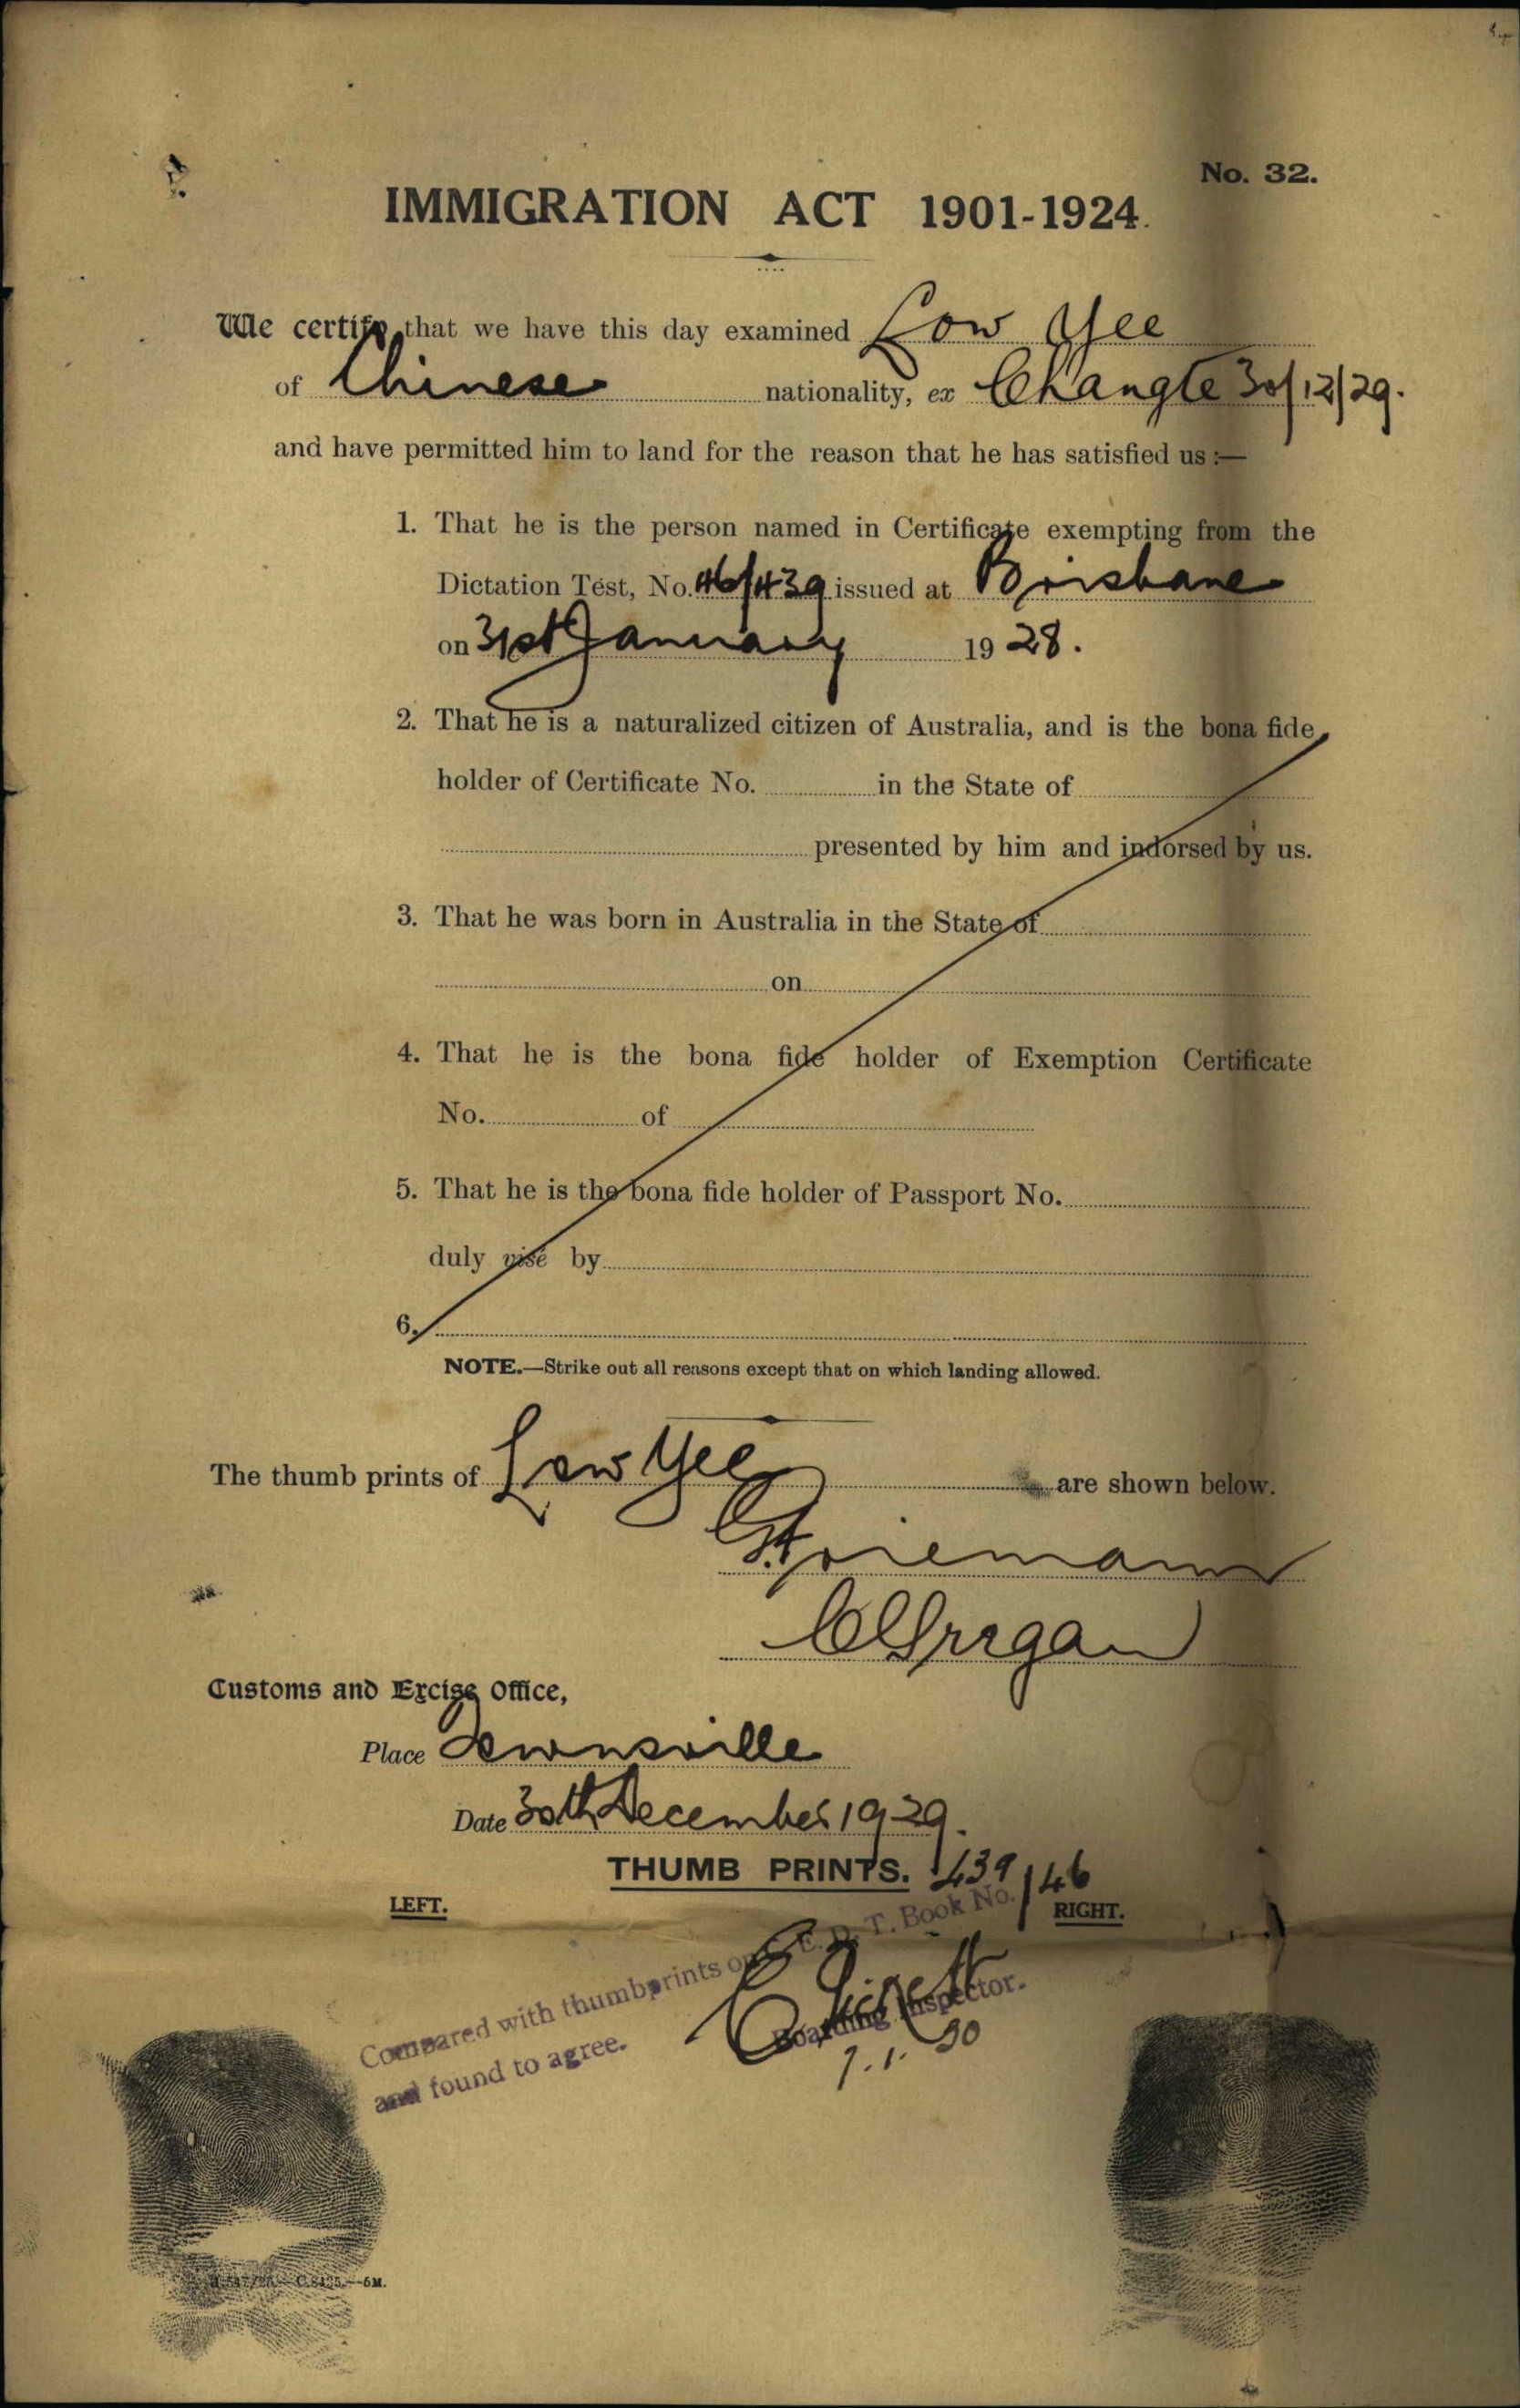 No. 32.
IMMIGRATION ACT 1901-1924.
We certify that we have this day examined Low Yee
of Chinese nationality, ex Changte 30/12/29.
and have permitted him to land for the reason that he has satisfied us :—
1. That he is the person named in Certificate exempting from the
Dictation Test, No. 46/439 issued at Brisbane
on 31st January 1928.
2. That he is a naturalized citizen of Australia, and is the bona fide
holder of Certificate No. in the State of
presented by him and indorsed by us.
3. That he was born in Australia in the State of
on
4. That he is the bona fide holder of Exemption Certificate
No. of
5. That he is the bona fide holder of Passport No.
duly visé by
6.
NOTE.—Strike out all reasons except that on which landing allowed.
The thumb prints of Low Yee are shown below.
Customs and Excise Office,
Place Townsville
Date 30th December 1929.
THUMB PRINTS. 439/46
LEFT. RIGHT.
Compared with thumbprints on C.E.D.T. Book No.
and found to agree.
Boarding Inspector.
7.1.30